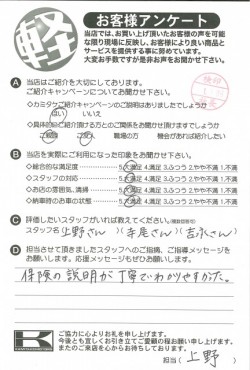 軽
お客様アンケート
当店では、お買い上げ頂いたお客様の声を可能
な限り現場に反映し、お客様により良い商品と
サービスを提供する事に努めています。
大変お手数ですが是非お声をお聞かせ下さい。
A 当店はご紹介を大切にしております。
ご紹介キャンペーンについてお聞かせ下さい。
◇カミタケご紹介キャンペーンのご説明はありましたでしょうか
はい いいえ
◇具体的にご紹介頂ける方とのご関係をお聞かせ頂けますでしょうか
ご親戚 ご友人 職場の方 機会があればご紹介したい
B 当店を実際にご利用になった印象をお聞かせ下さい。
◇総合的な満足度 5.大満足 4.満足 3.ふつう 2.やや不満 1.不満
◇スタッフの対応 5.大満足 4.満足 3.ふつう 2.やや不満 1.不満
◇お店の雰囲気、清掃 5.大満足 4.満足 3.ふつう 2.やや不満 1.不満
◇納車時のお車の状態 5.大満足 4.満足 3.ふつう 2.やや不満 1.不満
C 評価したいスタッフがいれば教えてください。(複数回答可)
スタッフ名(上野さん)(寺尾さん)(吉永さん)
D 担当させて頂きましたスタッフへのご指摘、ご指導メッセージを
お願いします。応援メッセージもぜひお願いします。
保険の説明が丁寧でわかりやすかった。
K
ご協力に心よりお礼を申し上げます。
今後とも宜しくお引き立てご愛顧の程お願い申し上げます。
またのご来店を心からお待ちしております。
担当(上野)